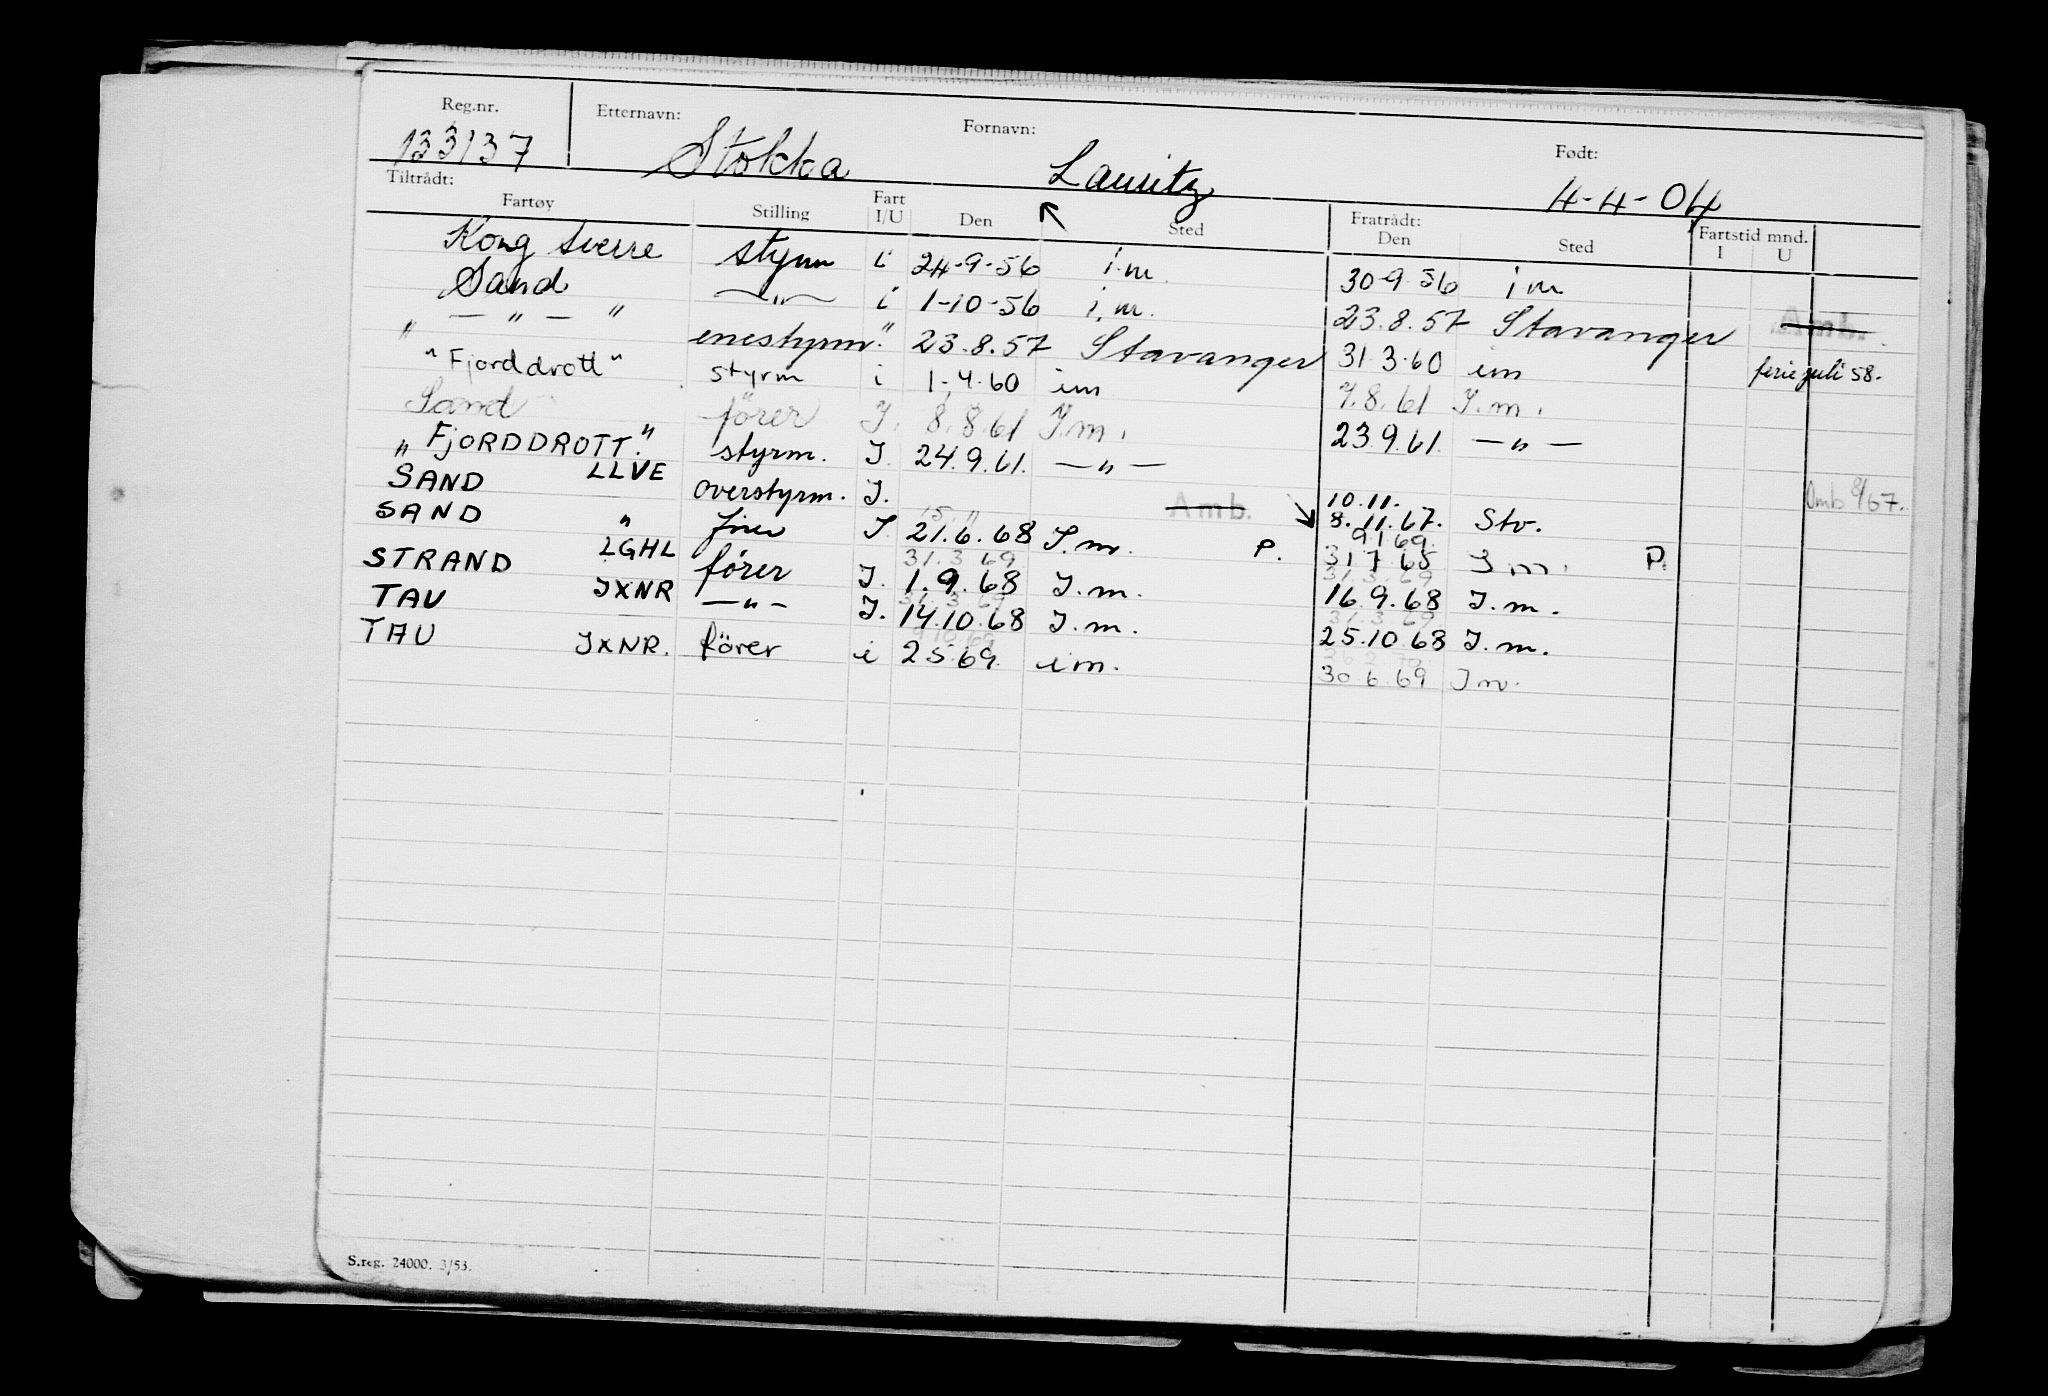 Reg.nr. Etternavn: Fornavn: Født:
133137 Stokka Lauritz 4-4-04
Tiltrådt: Fratrådt:
Fartøy Stilling Fart I/U Den Sted Den Sted Fartstid mnd. I U
Kong Sverre styrm i 24-9-56 i.m. 30-9-56 i m
Sand —"— i 1-10-56 i.m. 23.8.57 Stavanger Amb.
" — " — " enestyrm. " 23.8.57 Stavanger 31.3.60 im ferie juli 58.
"Fjorddrott" styrm i 1.4.60 im 7.8.61 I.m.
Sand fører I. 8.8.61 I.m. 23.9.61. —"—
"FJORDDROTT." styrm. I. 24.9.61. —"—
SAND LLVE overstyrm. I. Amb. 10.11. 8.11.67. Stv. Omb 8/67.
SAND " fører I 21.6.68 I.m. P. 31 7 68 I m. P.
9.1.69.
31.3.69 31.3.69
STRAND LGHL fører I. 1.9.68 I.m. 16.9.68 I.m.
31.3.69 31.3.69
TAU JXNR —"— I. 14.10.68 I.m. 25.10.68 I.m.
TAU JXNR. fører i 2.5.69. im. 30.6.69 I m.
S.reg. 24000. 3/53.